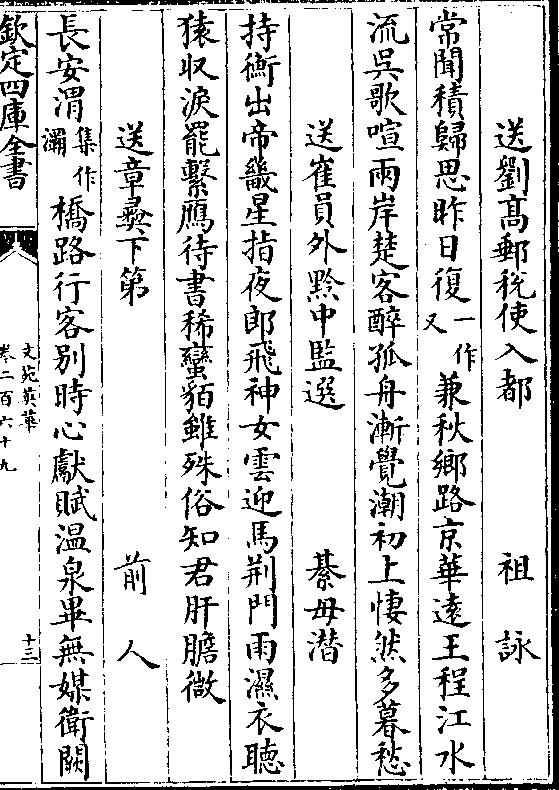 送劉髙郵税使入都　祖詠
常聞積歸思昨日復一作又兼秋鄉路京華遠王程江水
流吳歌喧兩岸楚客醉孤舟漸覺潮初上悽然多暮愁
送崔員外黔中監選　綦毋潛
持衡出帝畿星指夜郎飛神女雲迎馬荆門雨濕衣聴
猿収淚罷繫鴈待書稀蠻貊雖殊俗知君肝膽微
送章彞下第　前人
長安渭集作灞橋路行客別時心獻賦温泉畢無媒衛闕
欽定四庫全書
文苑英華
卷二百六十九
十三